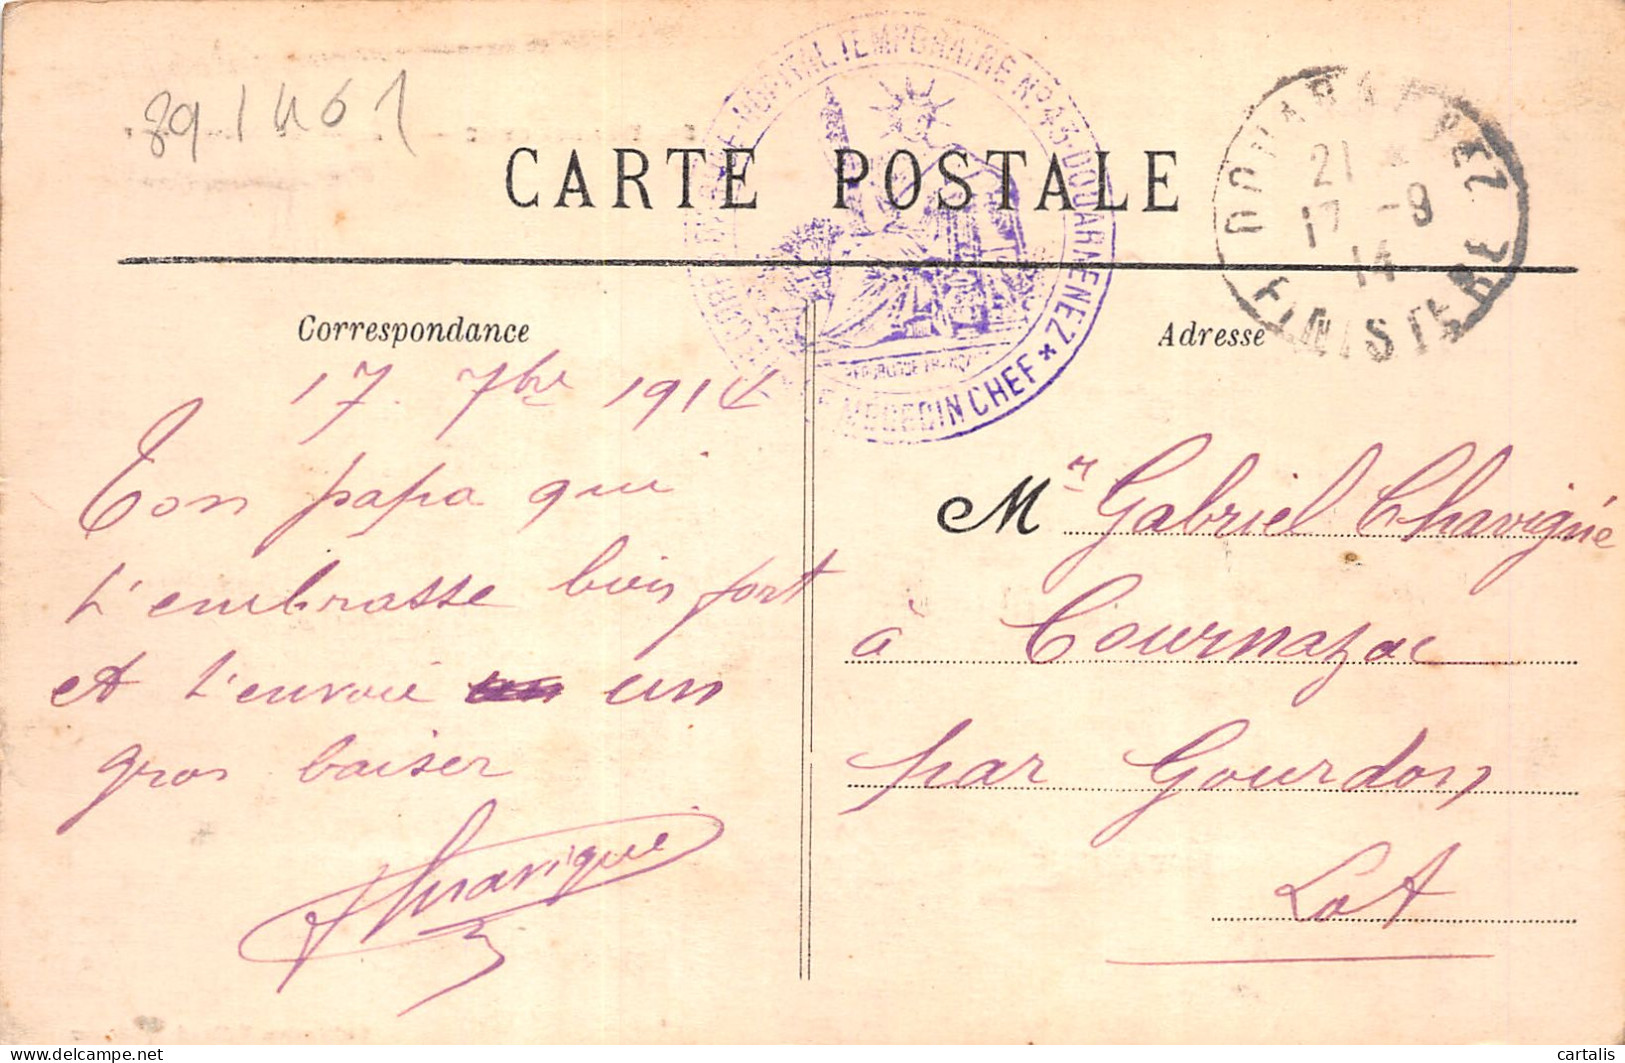 891401
CARTE POSTALE
HOPITAL TEMPORAIRE N° 43 · DOUARNENEZ * MEDECIN CHEF *
DOUARNENEZ
21 *
17 -9
14
FINISTERE
Correspondance
Adresse
17. 7bre 1914
Ton papa qui
t'embrasse bien fort
et t'envoie un
gros baiser
Chavigné
M r Gabriel Chavignié
à Cournazac
par Gourdon
Lot
cartalis